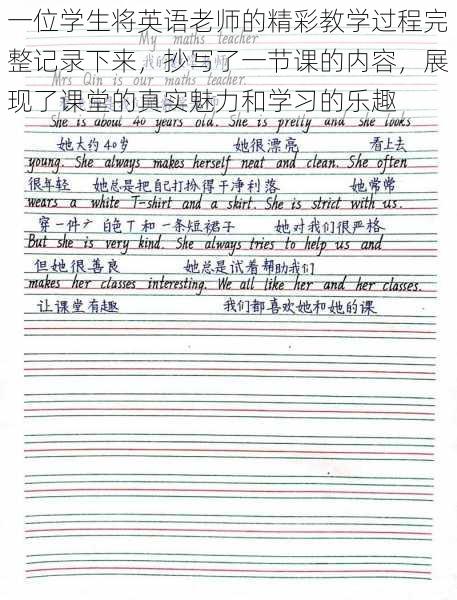 一位学生将英语老师的精彩教学过程完
整记录下来，抄写了一节课的内容，展
现了课堂的真实魅力和学习的乐趣
My maths teacher
我的 师
Mrs Qin is our maths teacher.
She is about 40 years old. She is pretty and she looks
她大约40岁 她很漂亮 看上去
young. She always makes herself neat and clean. She often
很年轻 她总是把自己打扮得干净利落 她常常
wears a white T-shirt and a skirt. She is strict with us.
穿一件 白色T和一条短裙子 她对我们很严格
But she is very kind. She always tries to help us and
但她很善良 她总是试着帮助我们
makes her classes interesting. We all like her and her classes.
让课堂有趣 我们都喜欢她和她的课